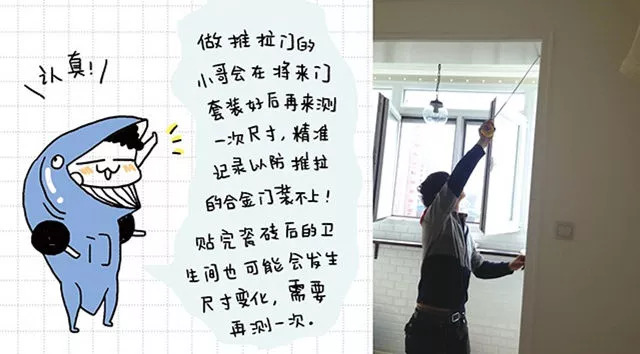 认真！
做推拉门的
小哥会在将来门
套装好后再来测
一次尺寸，精准
记录以防推拉
的合金门装不上！
贴完瓷砖后的卫
生间也可能会发生
尺寸变化，需要
再测一次。
门